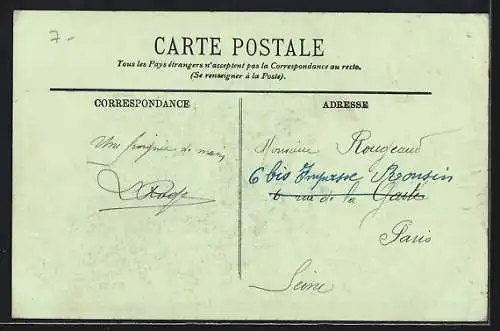 7-
CARTE POSTALE
Tous les Pays étrangers n'acceptent pas la Correspondance au recto.
(Se renseigner à la Poste).
CORRESPONDANCE
ADRESSE
Une poignée de main
Monsieur Rougeaud
6 bis Impasse Ronsin
6 rue de la Gaité
Paris
Seine